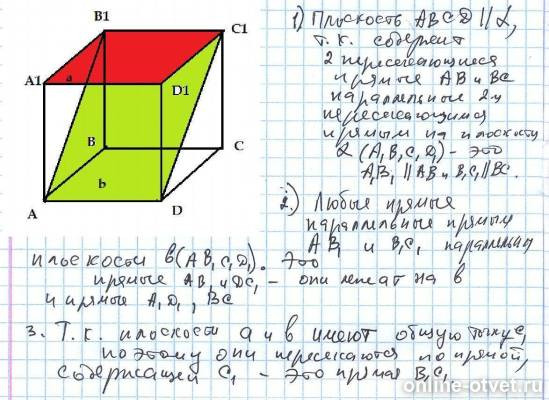 B1
C1
A1
a
D1
B
C
b
A
D
1) Плоскость ABCD || α,
т.к. содержит
2 пересекающиеся
прямые AB и BC
параллельные 2-м
пересекающимся
прямым на плоскости
α (A₁B₁C₁D₁) - это
A₁B₁ || AB и B₁C₁ || BC.
2) Любые прямые
параллельные прямым
AB₁ и B₁C₁ параллельны
плоскости в (AB₁C₁D₁). Это
прямые AB₁ и DC₁ - они лежат на в
и прямые A₁D₁, BC
3. Т.к. плоскости а и в имеют общую точку C₁
поэтому они пересекаются по прямой,
содержащей C₁ - это прямая B₁C₁
online-otvet.ru